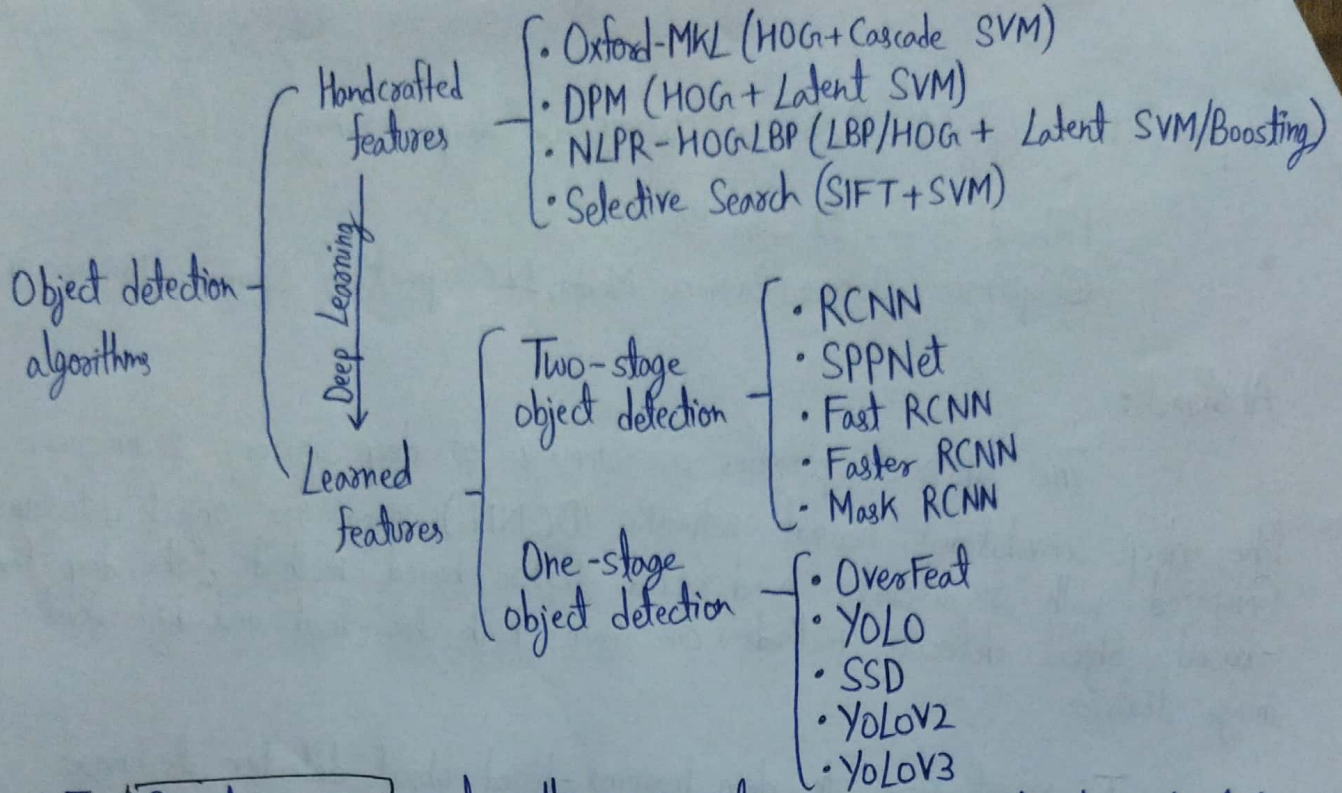 Object detection
algorithms
Handcrafted
features
• Oxford-MKL (HOG+Cascade SVM)
• DPM (HOG + Latent SVM)
• NLPR-HOGLBP (LBP/HOG + Latent SVM/Boosting)
• Selective Search (SIFT+SVM)
Deep Learning
Learned
features
Two-stage
object detection
• RCNN
• SPPNet
• Fast RCNN
• Faster RCNN
• Mask RCNN
One-stage
object detection
• OverFeat
• YOLO
• SSD
• YOLOV2
• YOLOV3